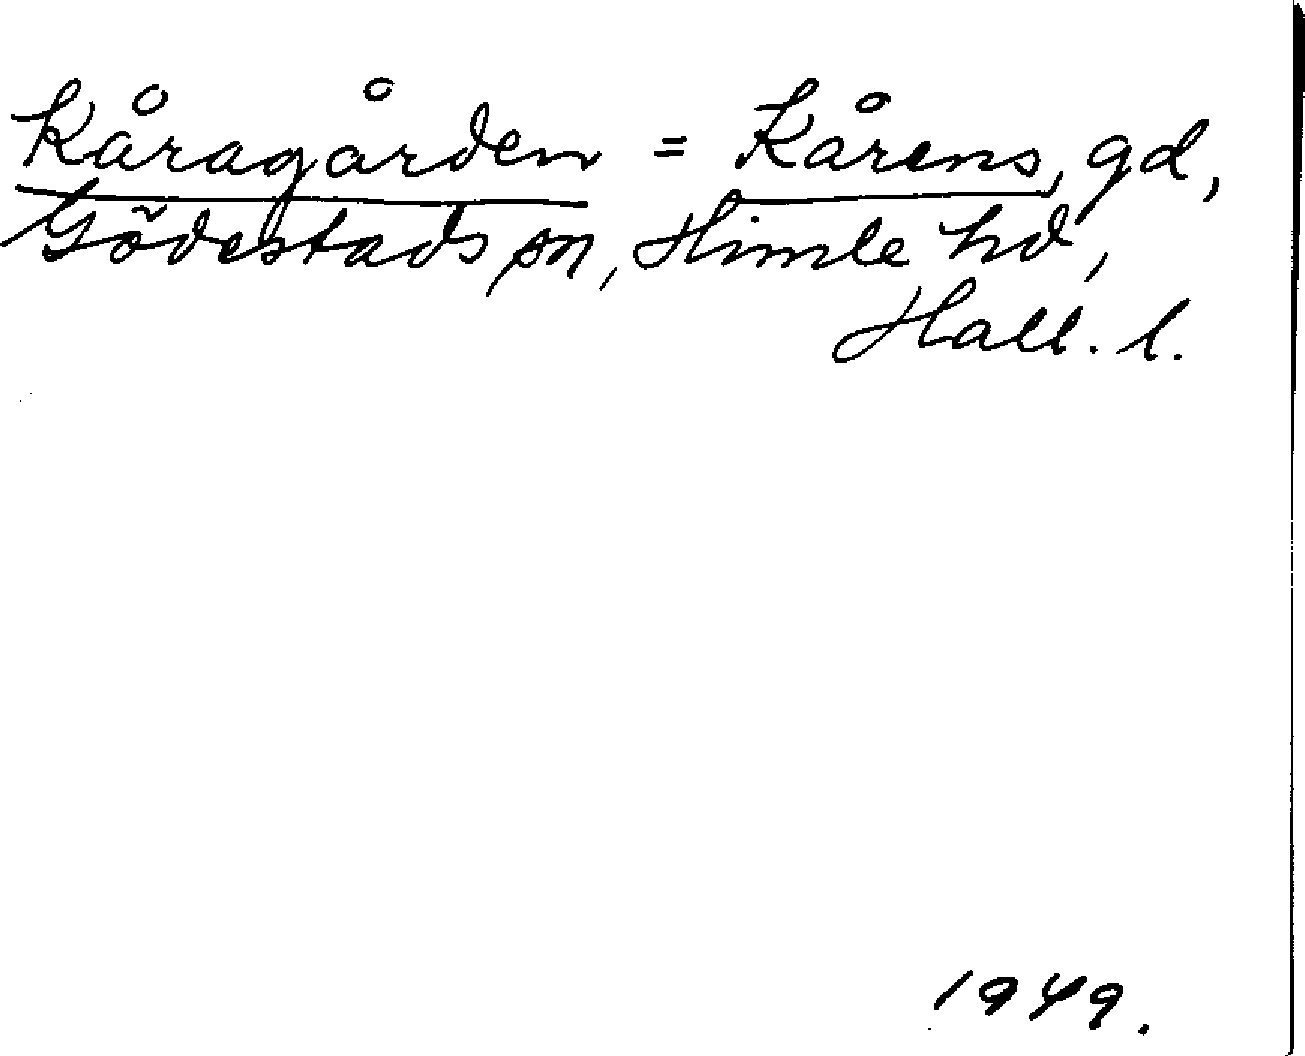 Kåragården = Kårens, gd,
Gödestads sn, Himle hd,
Hall. l.
1949.